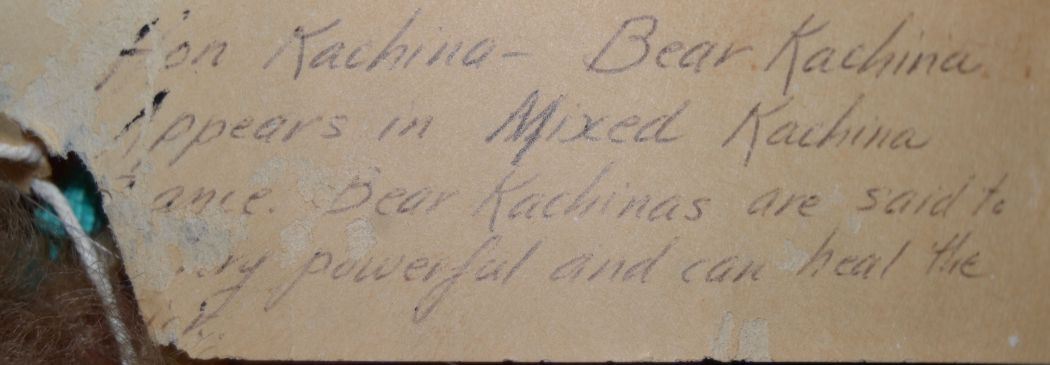 Hon Kachina - Bear Kachina
Appears in Mixed Kachina
Dance. Bear Kachinas are said to
very powerful and can heal the